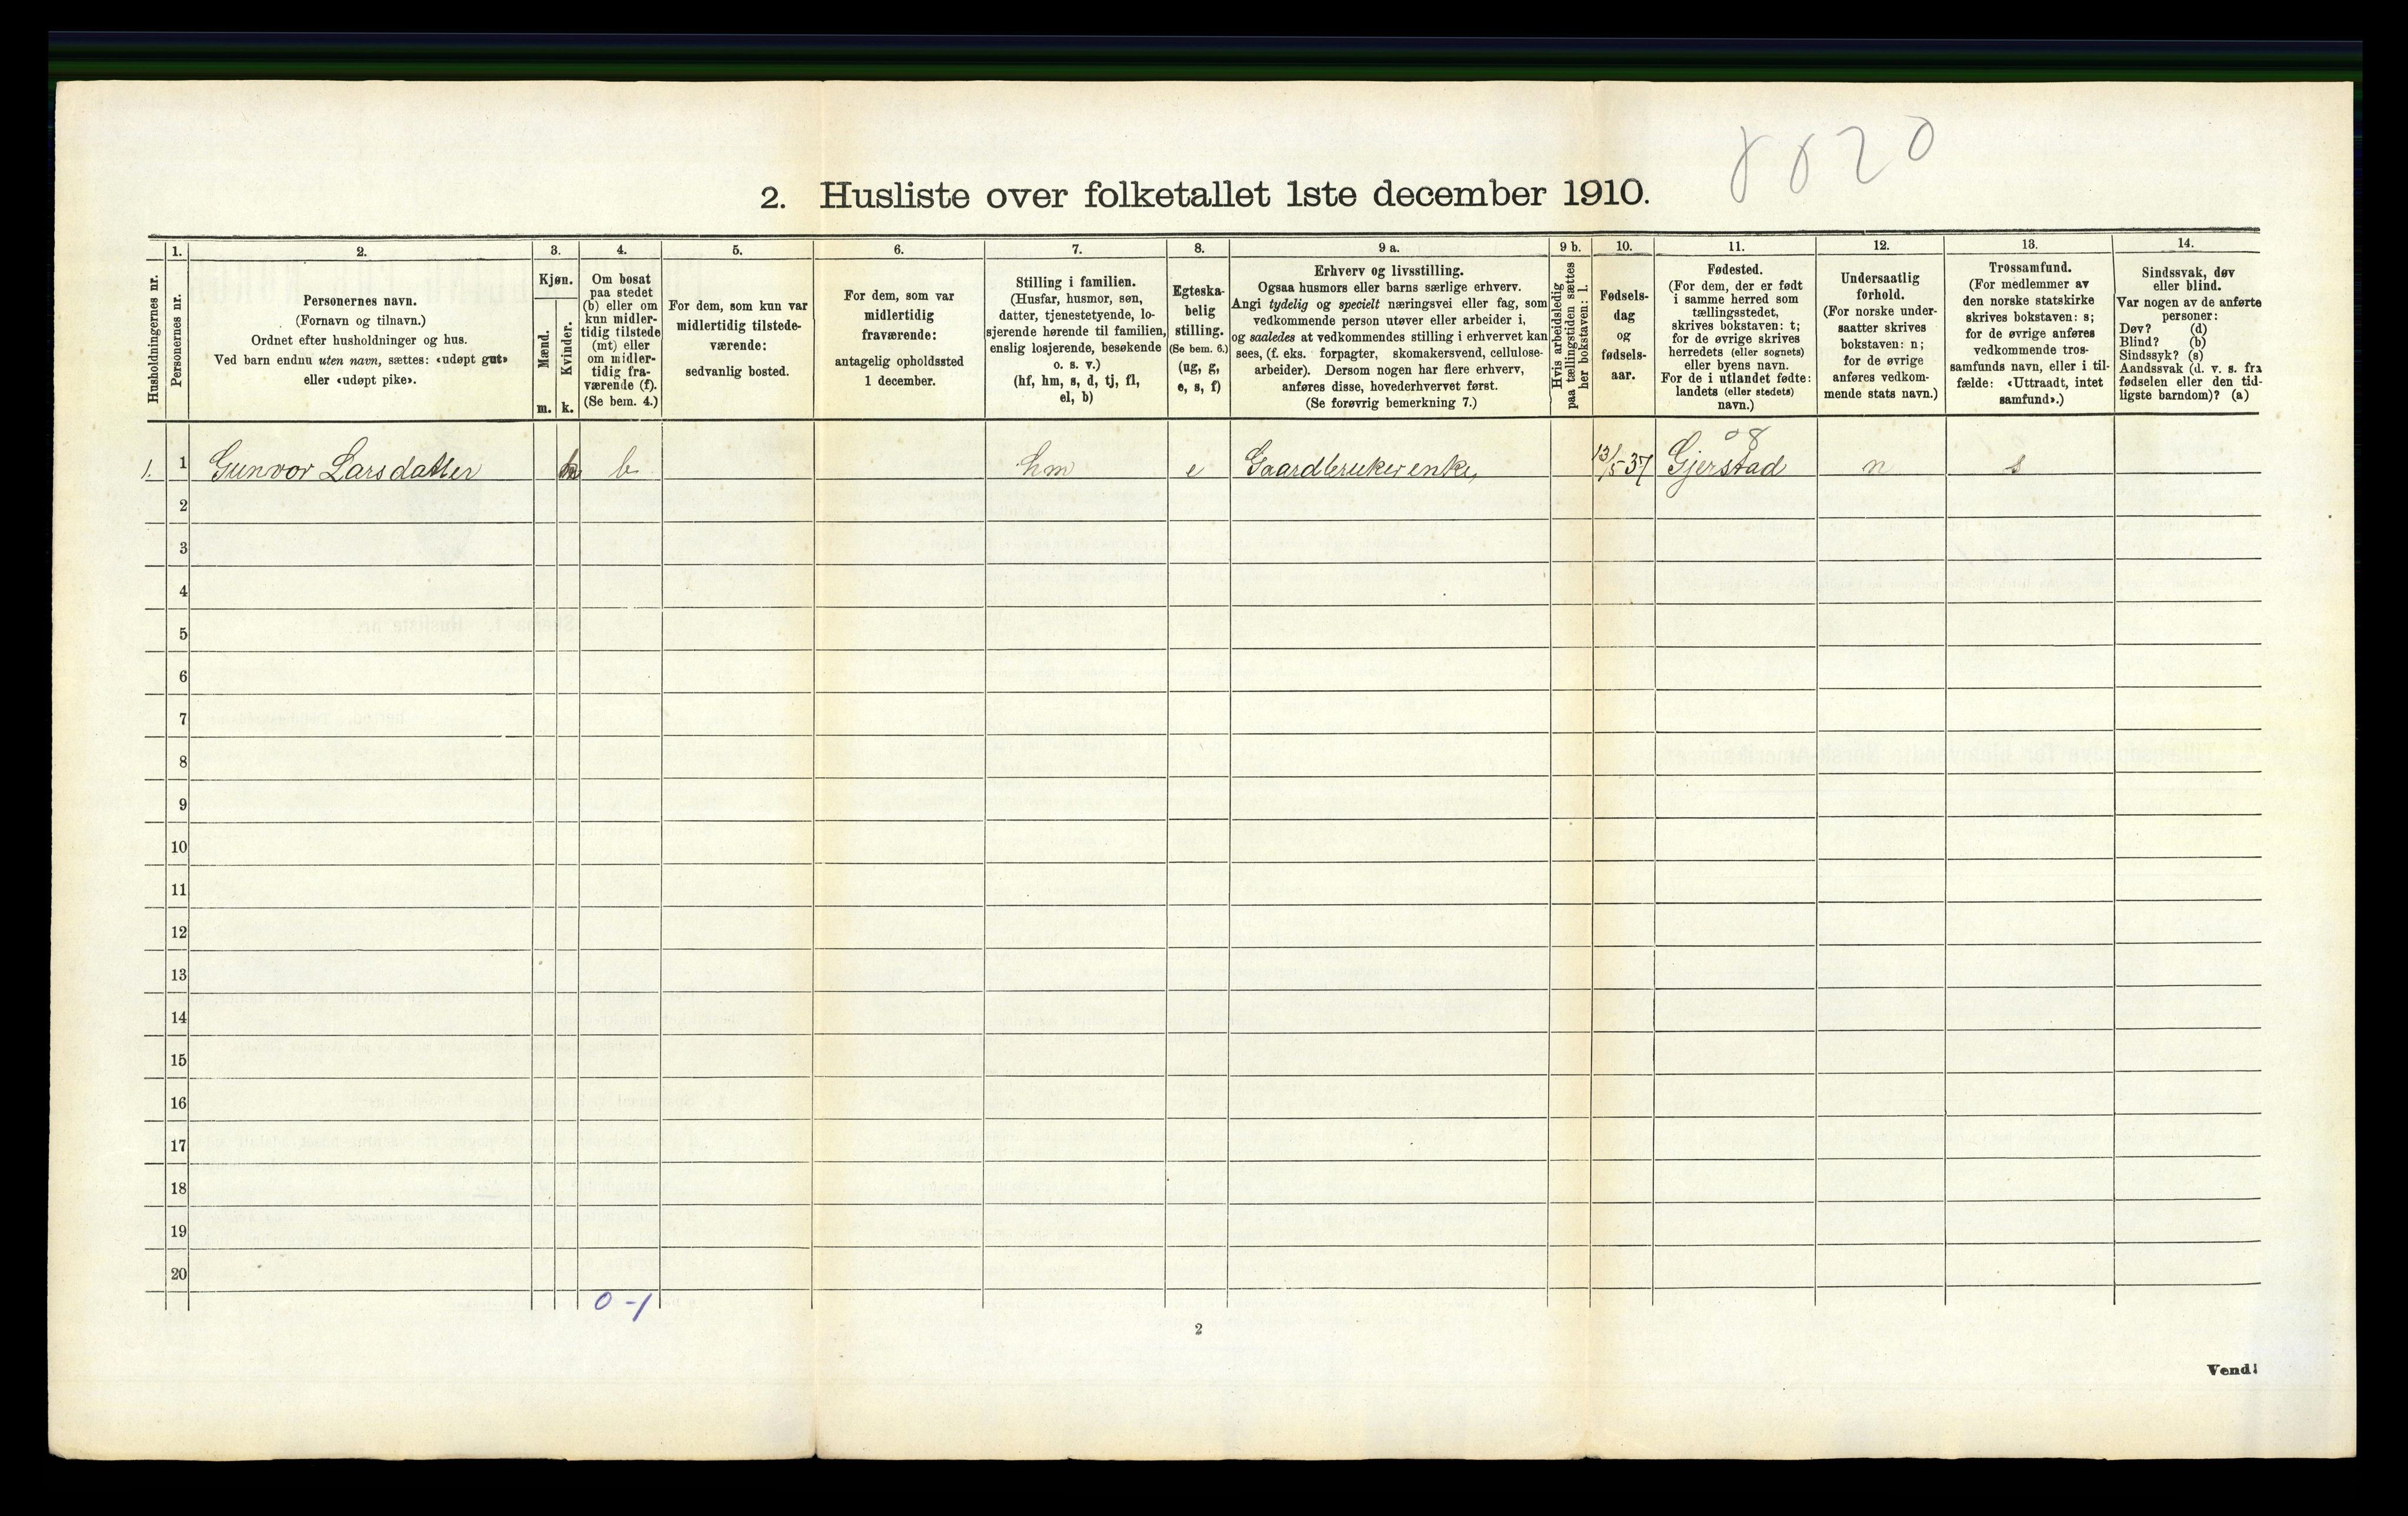 8020
2. Husliste over folketallet 1ste december 1910.
Husholdningernes nr.
1.
Personernes nr.
2.
Personernes navn.
(Fornavn og tilnavn.)
Ordnet efter husholdninger og hus.
Ved barn endnu uten navn, sættes: «udøpt gut»
eller «udøpt pike».
3.
Kjøn.
Mænd.
m.
Kvinder.
k.
4.
Om bosat
paa stedet
(b) eller om
kun midler-
tidig tilstede
(mt) eller
om midler-
tidig fra-
værende (f).
(Se bem. 4.)
5.
For dem, som kun var
midlertidig tilstede-
værende:
sedvanlig bosted.
6.
For dem, som var
midlertidig
fraværende:
antagelig opholdssted
1 december.
7.
Stilling i familien.
(Husfar, husmor, søn,
datter, tjenestetyende, lo-
sjerende hørende til familien,
enslig losjerende, besøkende
o. s. v.)
(hf, hm, s, d, tj, fl,
el, b)
8.
Egteska-
belig
stilling.
(Se bem. 6.)
(ug, g,
e, s, f)
9 a.
Erhverv og livsstilling.
Ogsaa husmors eller barns særlige erhverv.
Angi tydelig og specielt næringsvei eller fag, som
vedkommende person utøver eller arbeider i,
og saaledes at vedkommendes stilling i erhvervet kan
sees, (f. eks. forpagter, skomakersvend, cellulose-
arbeider). Dersom nogen har flere erhverv,
anføres disse, hovederhvervet først.
(Se forøvrig bemerkning 7.)
9 b.
Hvis arbeidsledig
paa tællingstiden sættes
her bokstaven: l.
10.
Fødsels-
dag
og
fødsels-
aar.
11.
Fødested.
(For dem, der er født
i samme herred som
tællingsstedet,
skrives bokstaven: t;
for de øvrige skrives
herredets (eller sognets)
eller byens navn.
For de i utlandet fødte:
landets (eller stedets)
navn.)
12.
Undersaatlig
forhold.
(For norske under-
saatter skrives
bokstaven: n;
for de øvrige
anføres vedkom-
mende stats navn.)
13.
Trossamfund.
(For medlemmer av
den norske statskirke
skrives bokstaven: s;
for de øvrige anføres
vedkommende tros-
samfunds navn, eller i til-
fælde: «Uttraadt, intet
samfund».)
14.
Sindssvak, døv
eller blind.
Var nogen av de anførte
personer:
Døv? (d)
Blind? (b)
Sindssyk? (s)
Aandssvak (d. v. s. fra
fødselen eller den tid-
ligste barndom)? (a)
08
1. 1 Gunvor Larsdatter k b hm e Gaardbrukerenke, 13/5 37 Gjerstad n s
2
3
4
5
6
7
8
9
10
11
12
13
14
15
16
17
18
19
20
0-1
2
Vend!